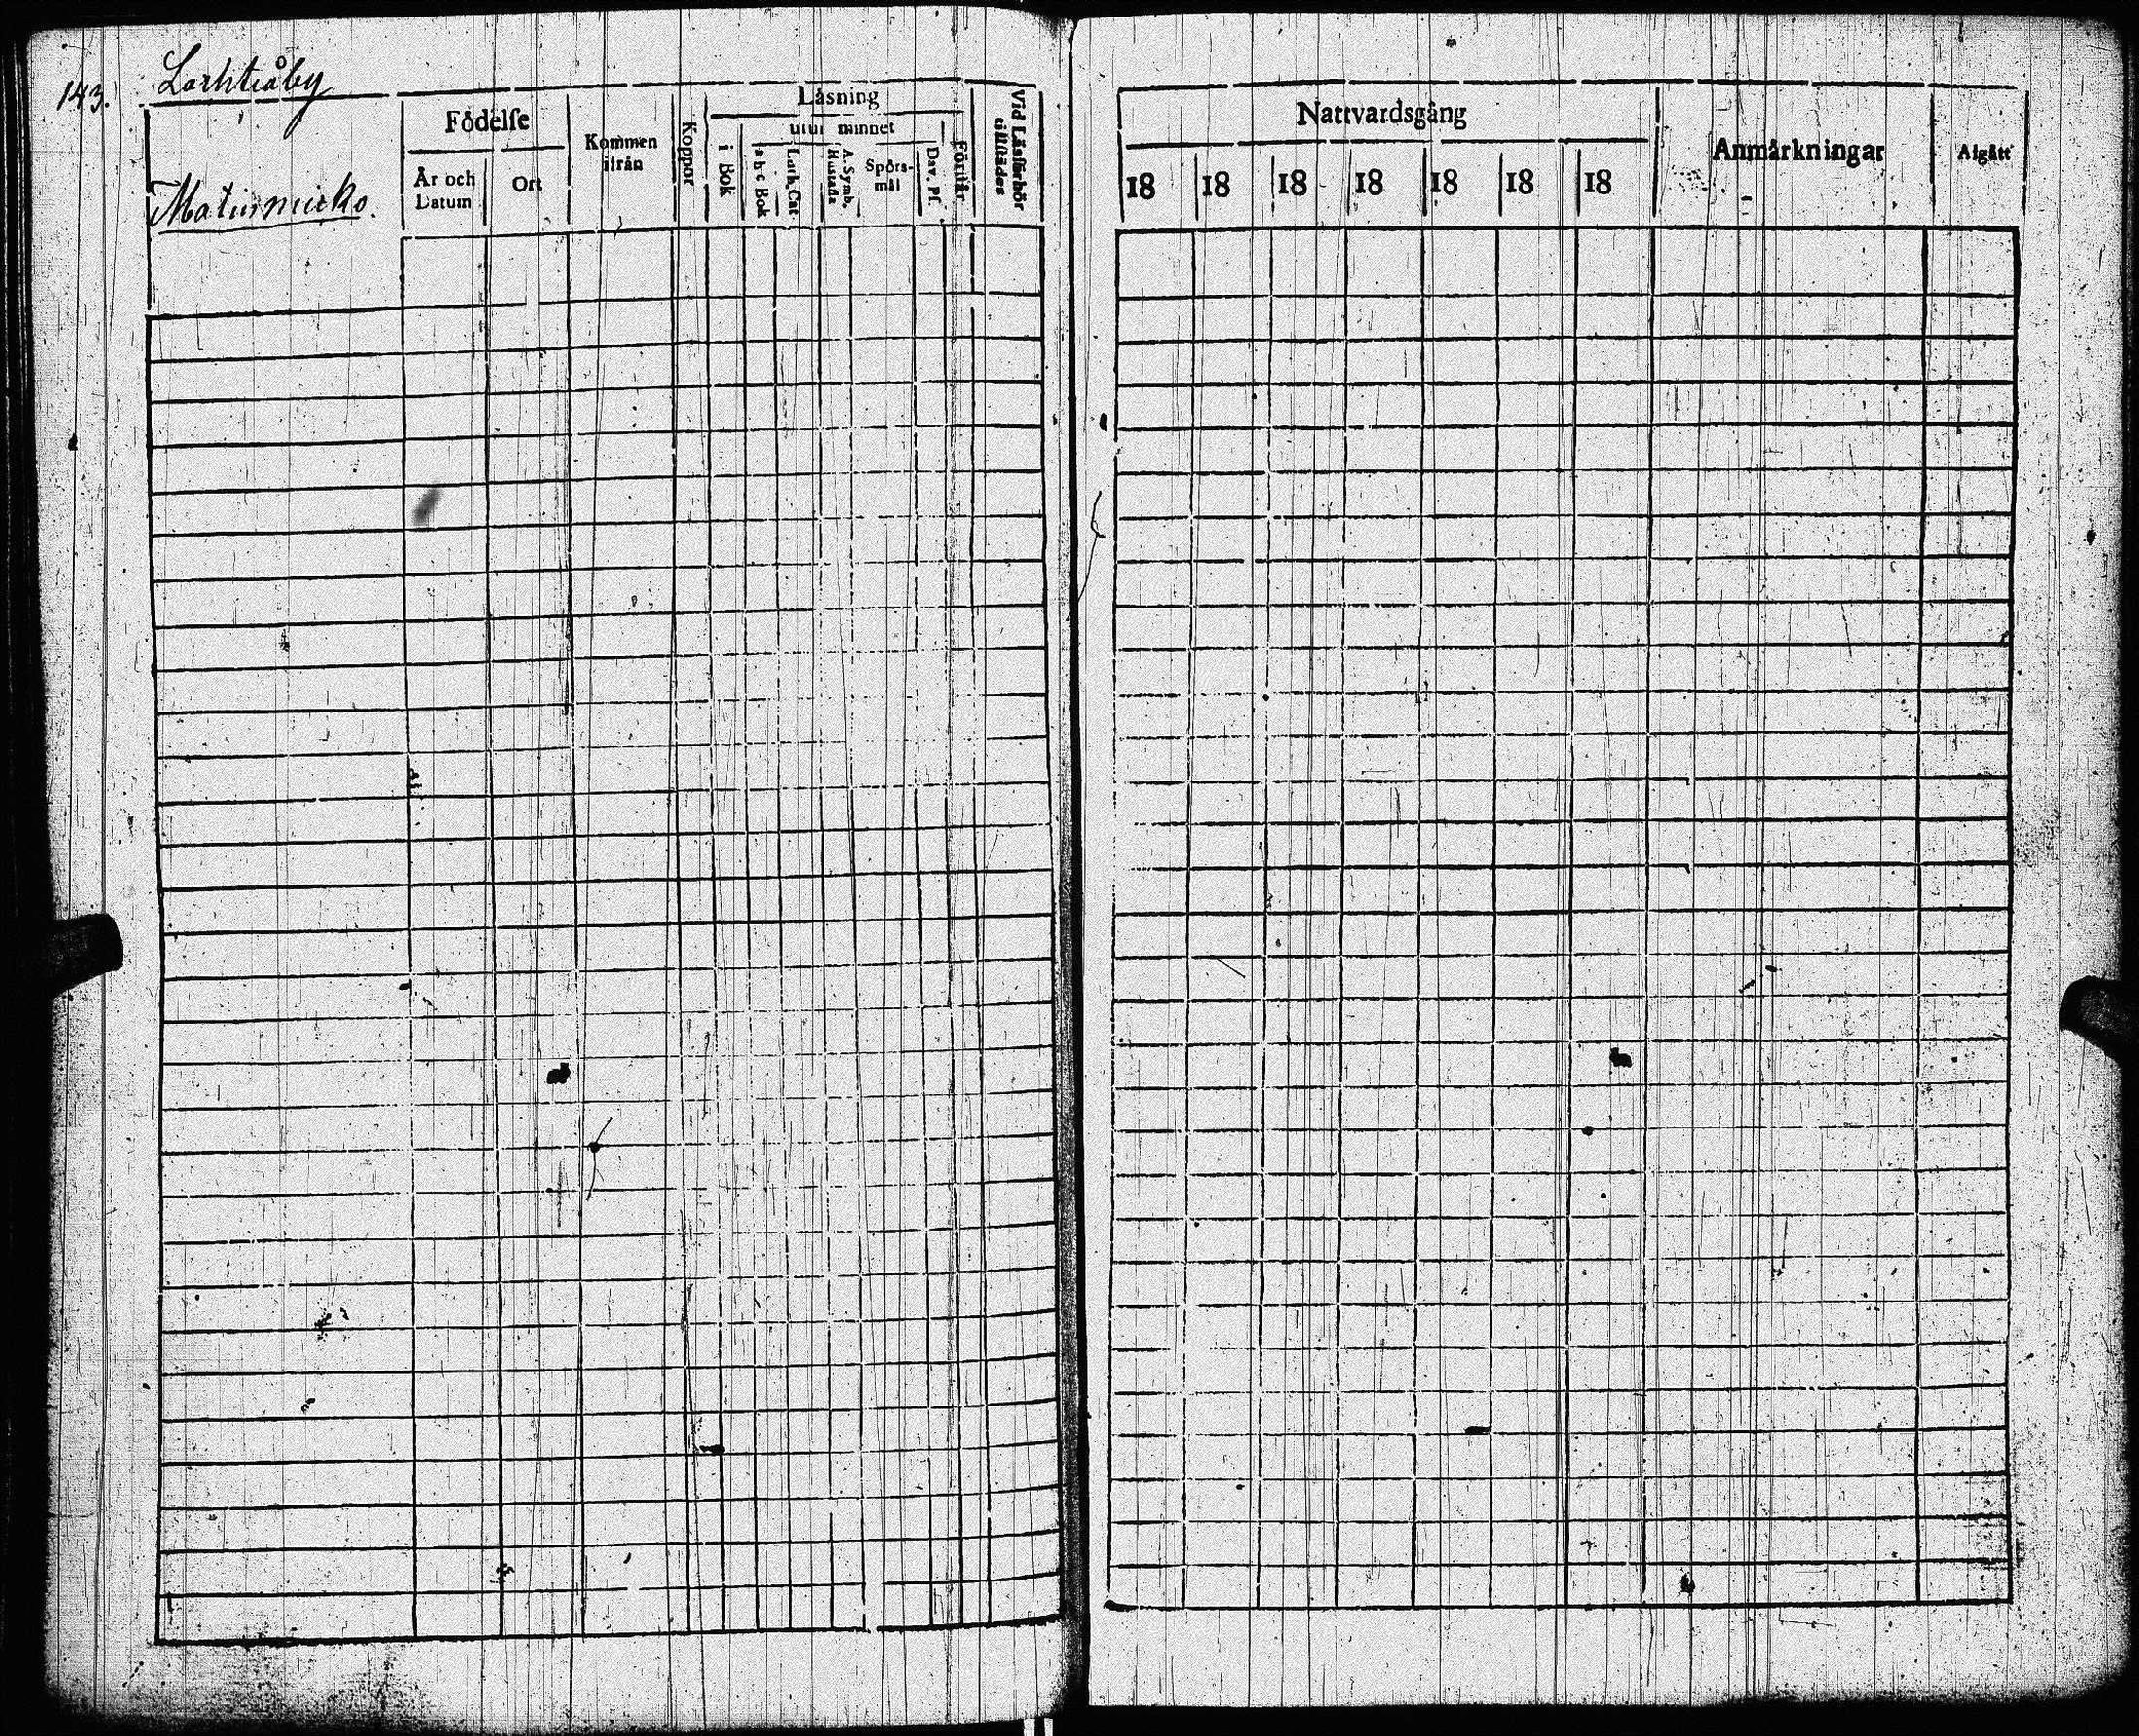 143.
Födelse
År och Datum
Ort
Kommen ifrån
Koppor
Läsning
i Bok
utur minnet
a b c Bok
Luth. Cat.
A. Symb. Hustafla
Spörsmål
Dav. Pf.
Förstår
Vid Läsförhör tillstädes
Nattvardsgång
18 18 18 18 18 18 18
Anmärkningar
Afgått